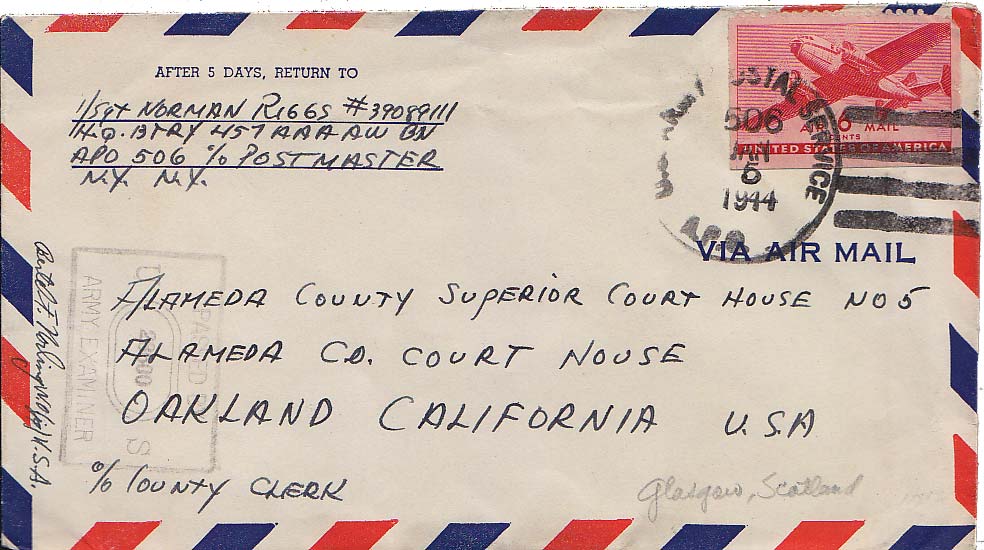 AFTER 5 DAYS, RETURN TO
1/Sgt NORMAN RIGGS #39089111
H.Q. BTRY 457 AAA AW BN
APO 506 % POSTMASTER
N.Y. N.Y.
POSTAL SERVICE
506
JAN
6
1944
A.P.O.
AIR 6 MAIL
CENTS
UNITED STATES OF AMERICA
VIA AIR MAIL
ALAMEDA COUNTY SUPERIOR COURT HOUSE NO 5
ALAMEDA CO. COURT HOUSE
OAKLAND CALIFORNIA U.S.A
% COUNTY CLERK
Glasgow, Scotland
PASSED
U S
ARMY EXAMINER
U.S.A.